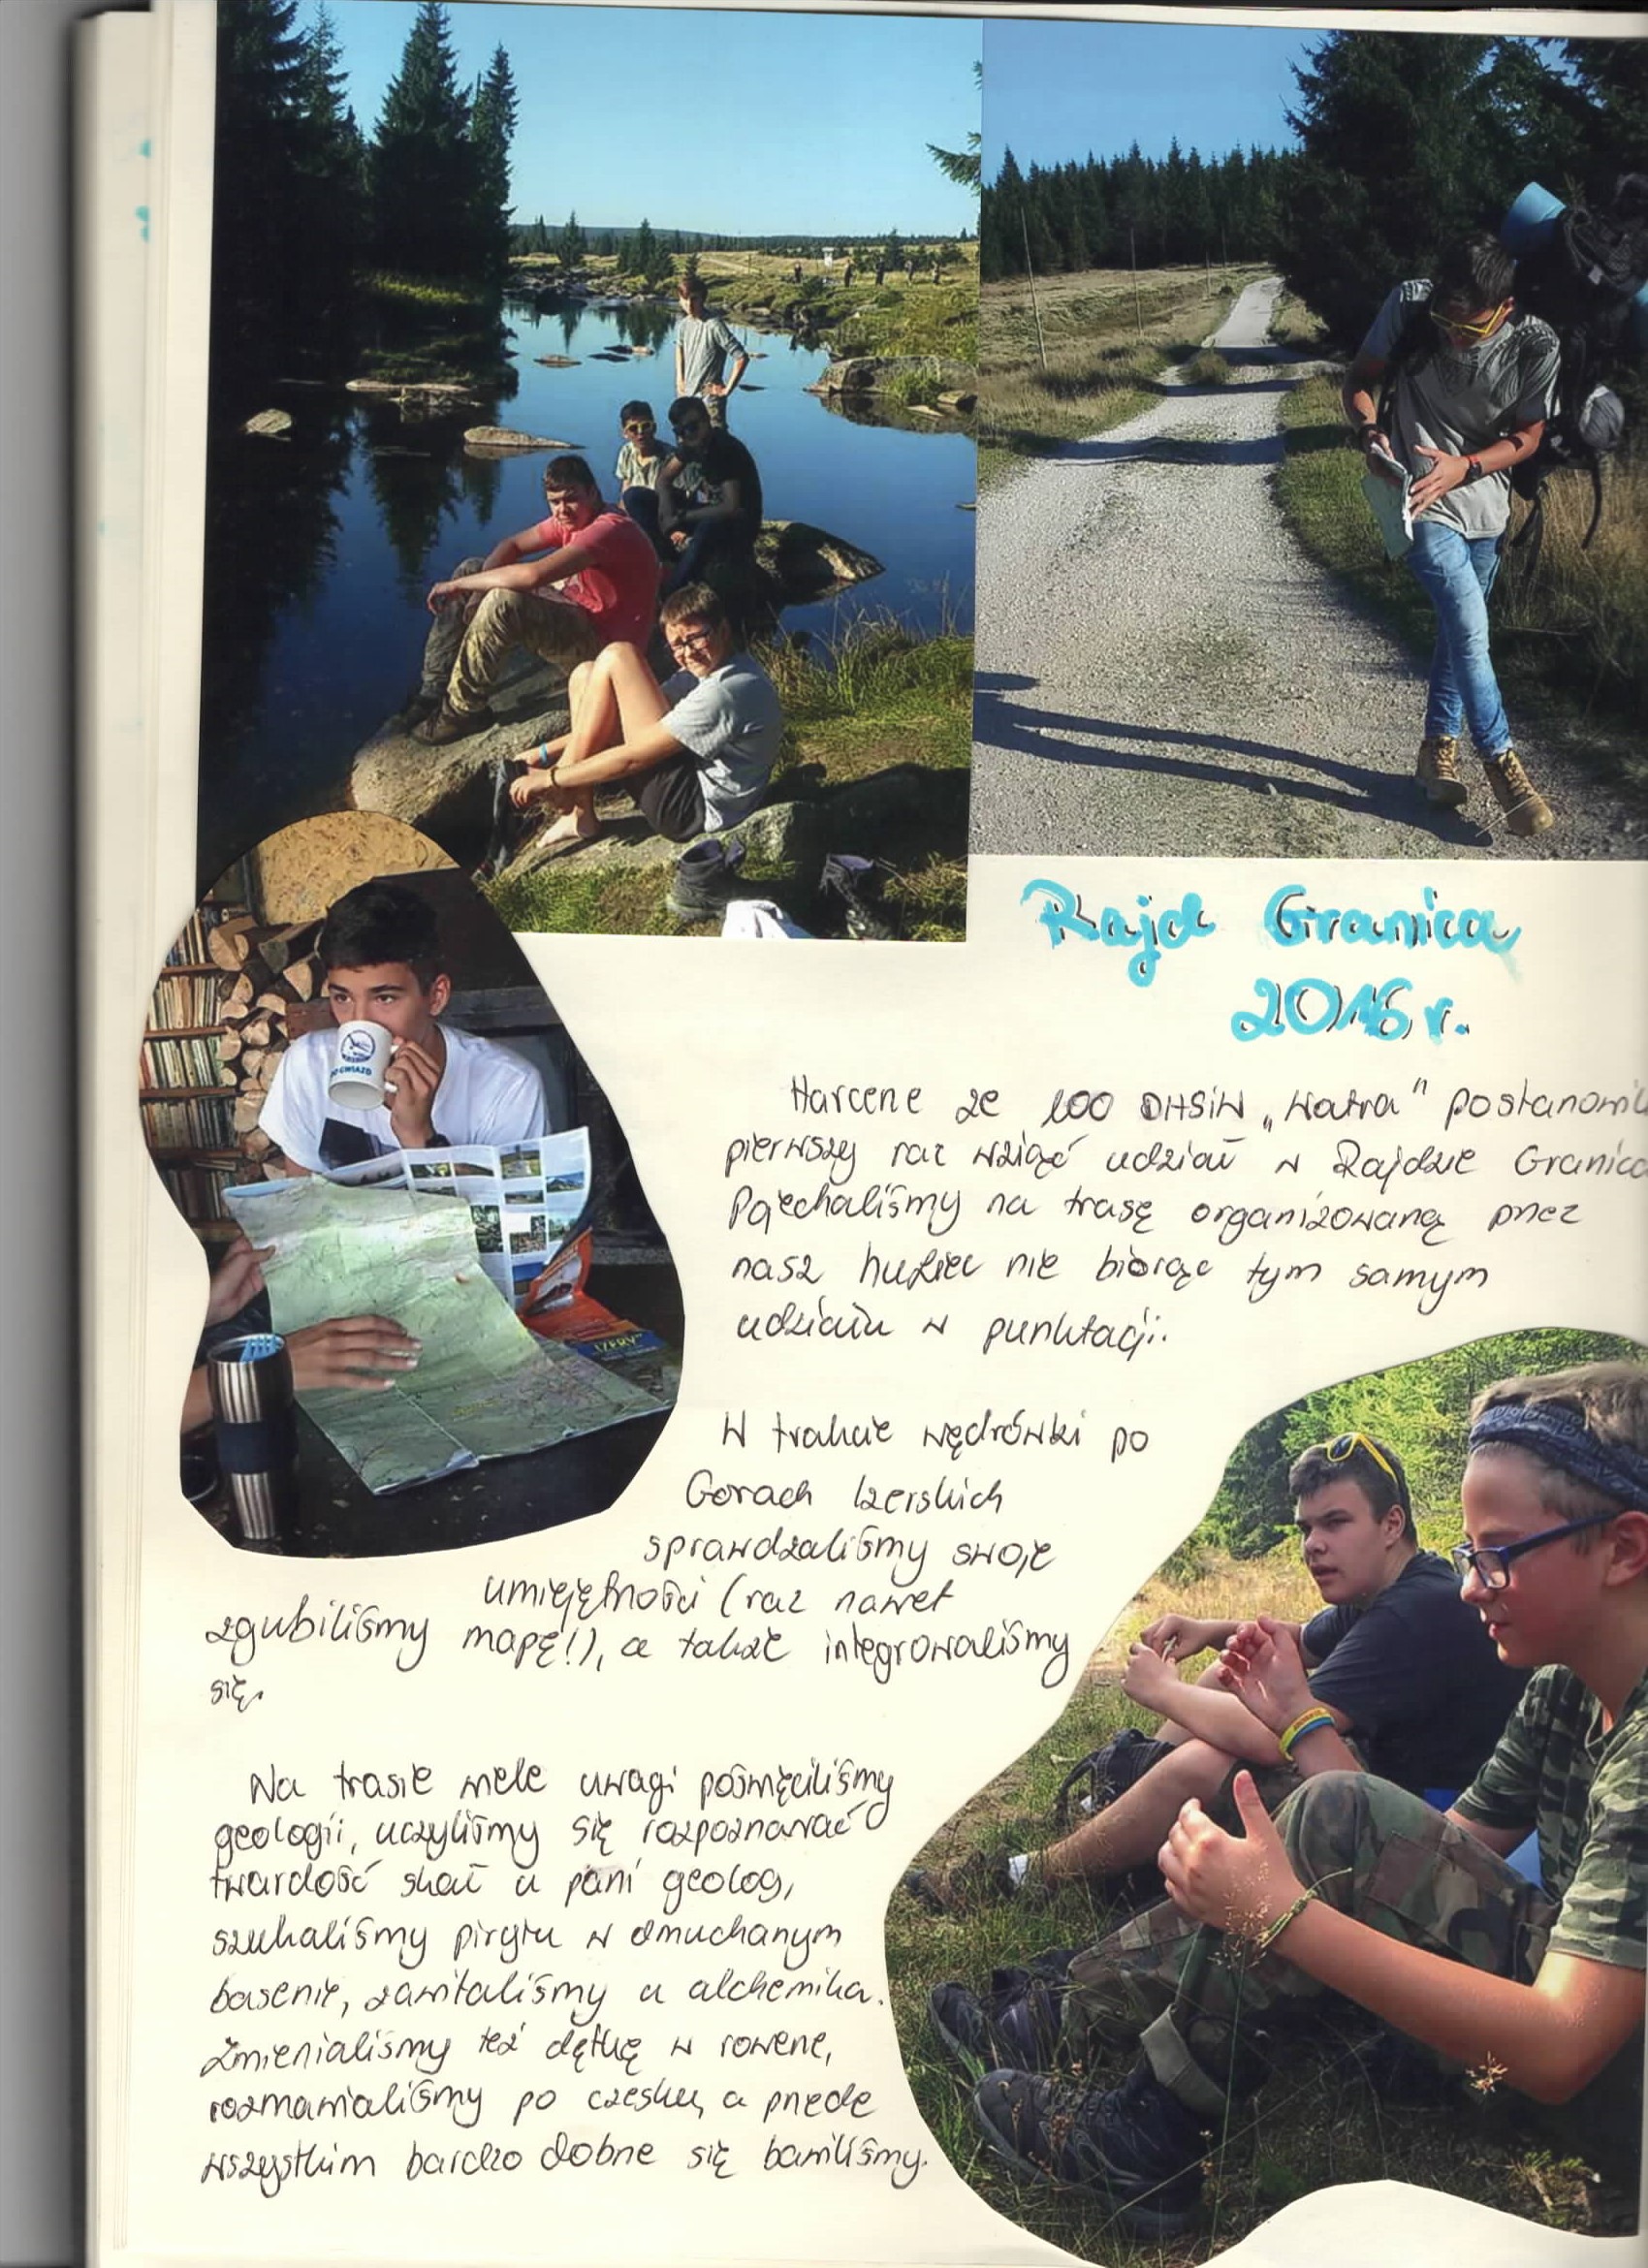 Rajd Granica
2016 r.
Harcerze ze 100 DHSiW „Watra" postanowili
pierwszy raz wziąć udział w Rajdzie Granica
Pojechaliśmy na trasę organizowaną przez
nasz hufiec nie biorąc tym samym
udziału w punktacji.
W trakcie wędrówki po
Górach Izerskich
sprawdzaliśmy swoje
umiejętności (raz nawet
zgubiliśmy mapę!), a także integrowaliśmy
się.
Na trasie wiele uwagi poświęciliśmy
geologii, uczyliśmy się rozpoznawać
twardość skał u pani geolog,
szukaliśmy pirytu w dmuchanym
basenie, zawitaliśmy u alchemika.
Zmienialiśmy też dętkę w rowerze,
rozmawialiśmy po czesku, a przede
wszystkim bardzo dobrze się bawiliśmy.
DO GWIAZD
IZERY